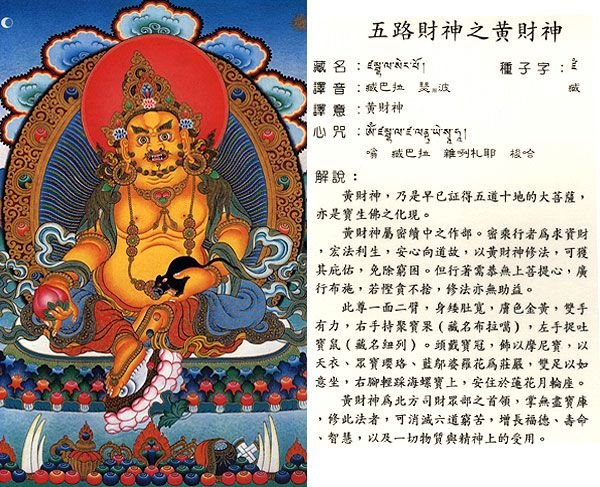 五路財神之黃財神
藏名：ཛམྦྷ་ལ་སེར་པོ། 種子字：ཛཾ
譯音：臧巴拉 瑟波 臧
譯意：黃財神
心咒：
嗡 臧巴拉 雜咧札耶 梭哈
解說：
黃財神，乃是早已証得五道十地的大菩薩，
亦是寶生佛之化現。
黃財神屬密續中之作部。密乘行者爲求資財
，宏法利生，安心向道故，以黃財神修法，可獲
其庇佑，免除窮困。但行者需恭無上菩提心，廣
行布施，若慳貪不捨，修法亦無助益。
此尊一面二臂，身矮肚寬，膚色金黃，雙手
有力，右手持聚寶果（藏名布拉噶），左手捉吐
寶鼠（藏名紐列）。頭戴寶冠，飾以摩尼寶，以
天衣、眾寶瓔珞、藍鄔婆羅花爲莊嚴，雙足以如
意坐，右腳輕踩海螺寶上，安住於蓮花月輪座。
黃財神爲北方司財眾部之首領，掌無盡寶庫
，修此法者，可消滅六道窮苦，增長福德、壽命
、智慧，以及一切物質與精神上的受用。